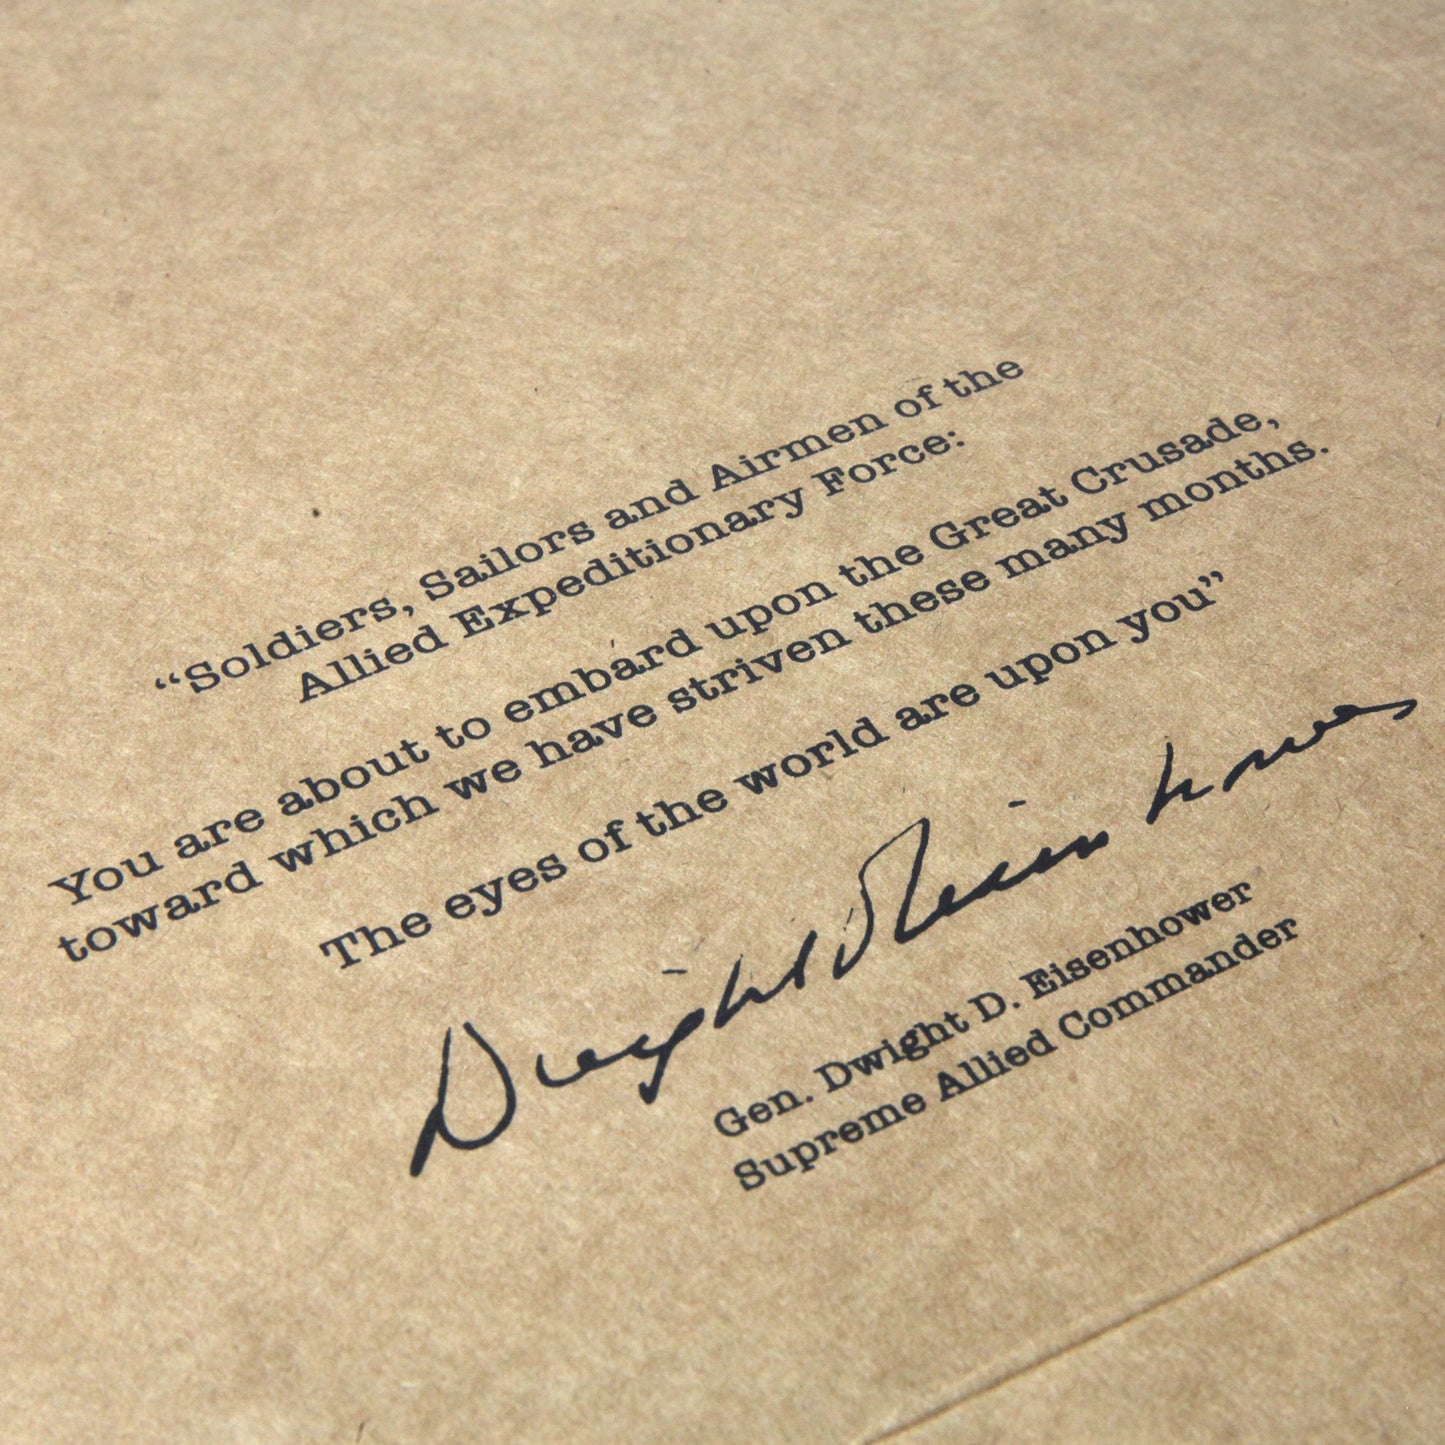 “Soldiers, Sailors and Airmen of the
Allied Expeditionary Force:
You are about to embard upon the Great Crusade,
toward which we have striven these many months.
The eyes of the world are upon you”
Dwight D Eisenhower
Gen. Dwight D. Eisenhower
Supreme Allied Commander